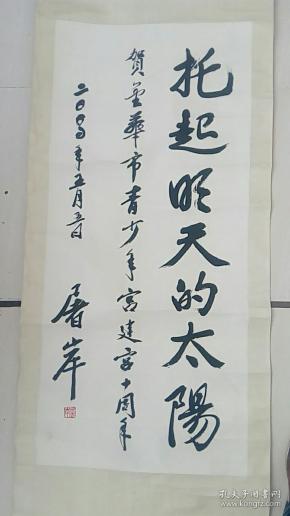 托起明天的太陽
賀金華市青少年宫建宫十周年
二〇〇五年五月五日
屠岸
孔夫子旧书网